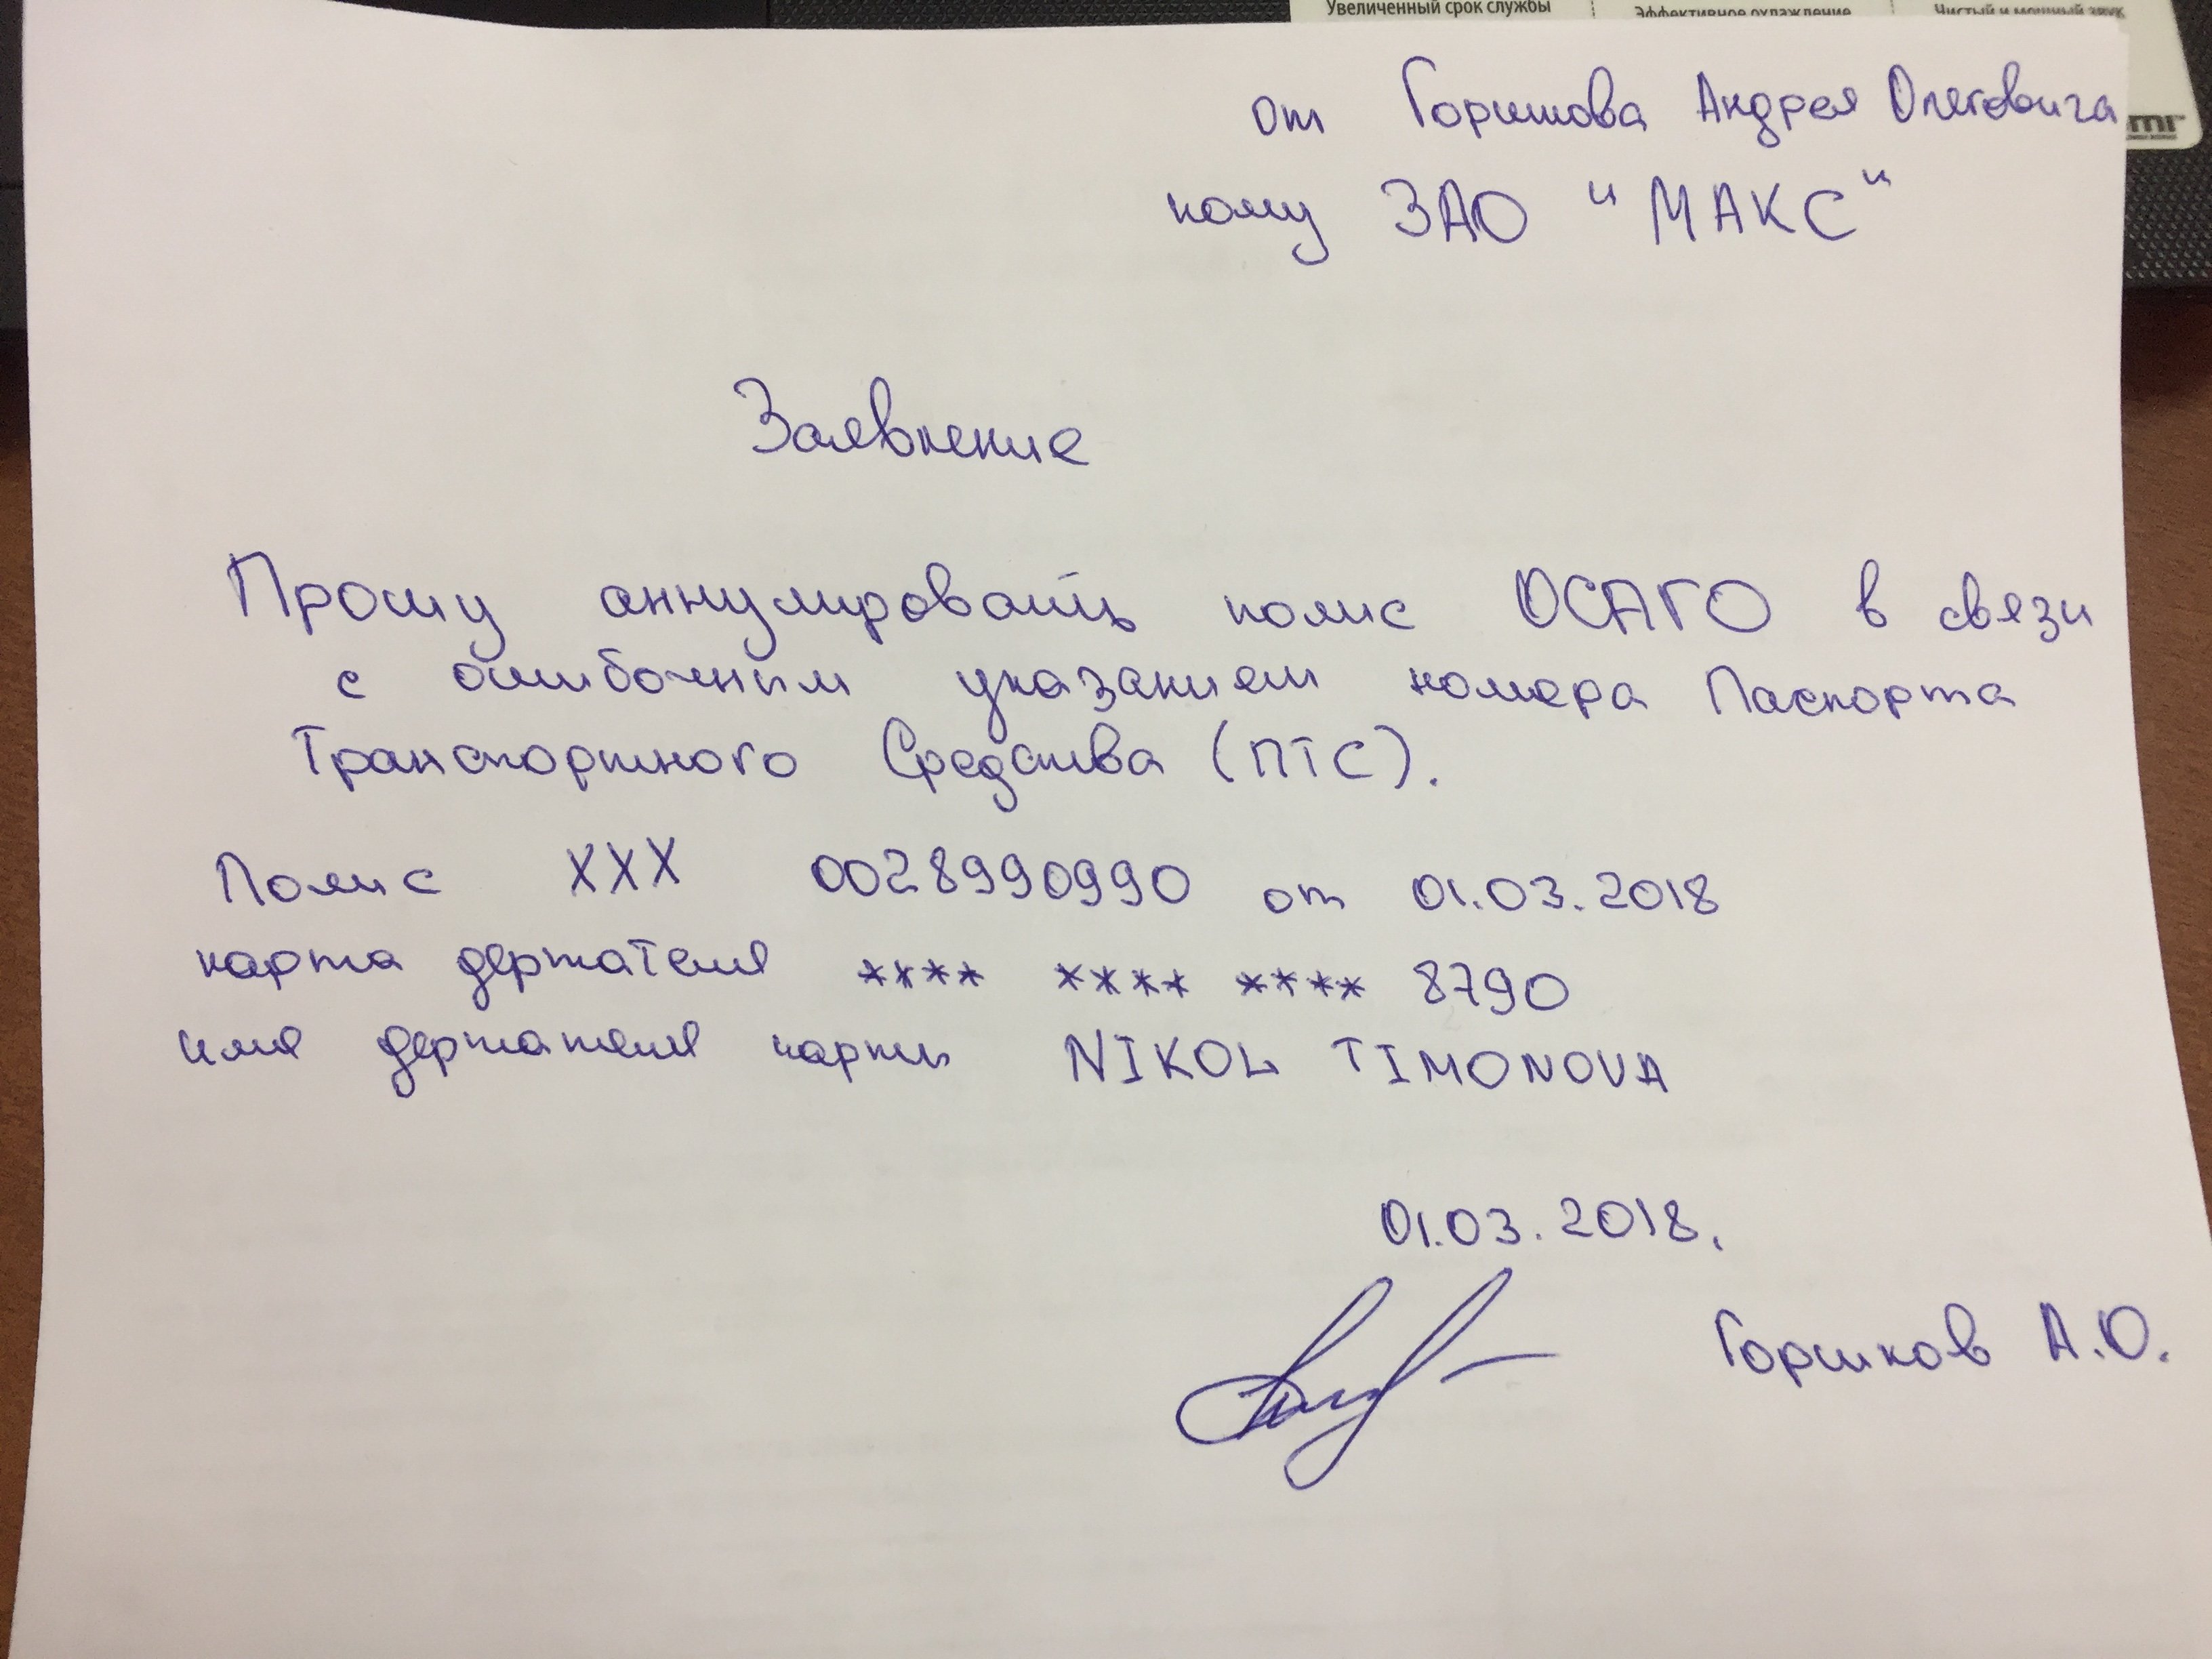 Увеличенный срок службы
Эффективное охлаждение
Чистый и мощный звук
mr
от Горшкова Андрея Олеговича
кому ЗАО "МАКС"
Заявление
Прошу аннулировать полис ОСАГО в связи
с ошибочным указанием номера Паспорта
Транспортного Средства (ПТС).
Полис ХХХ 0028990990 от 01.03.2018
карта держателя **** **** **** 8790
имя держателя карты NIKOL TIMONOVA
01.03.2018.
Горшков А.О.